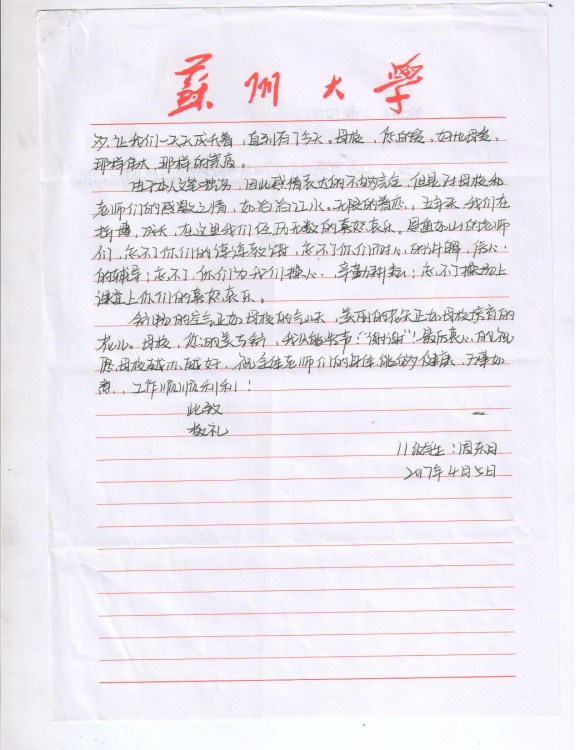 蘇州大學
让我们一天天成长着，直到有了今天。母校，您的爱，如此母爱，
那样伟大，那样的崇高。
由于本人文笔拙浅，因此感情表达的不够完全，但是对母校和
老师们的感激之情，如滔滔江水。无限的眷恋，五年来，我们在
拼搏，成长，在这里我们经历无数的喜怒哀乐。恩重如山的老师
们，忘不了你们的谆谆教诲，忘不了你们耐心的讲解，信心
的辅导；忘不了你们为我们操心，辛勤耕耘；忘不了操场上
课堂上你们的喜怒哀乐。
的空气正如母校的气息，美丽的花朵正如母校培育的
花儿。母校，您的，我只能尖声："谢谢"！最后衷心的祝
愿母校越办越好，祝全体老师们的身体能够健康，万事如
意，工作顺顺利利！
此致
敬礼
11级学生：周东日
2017年4月5日